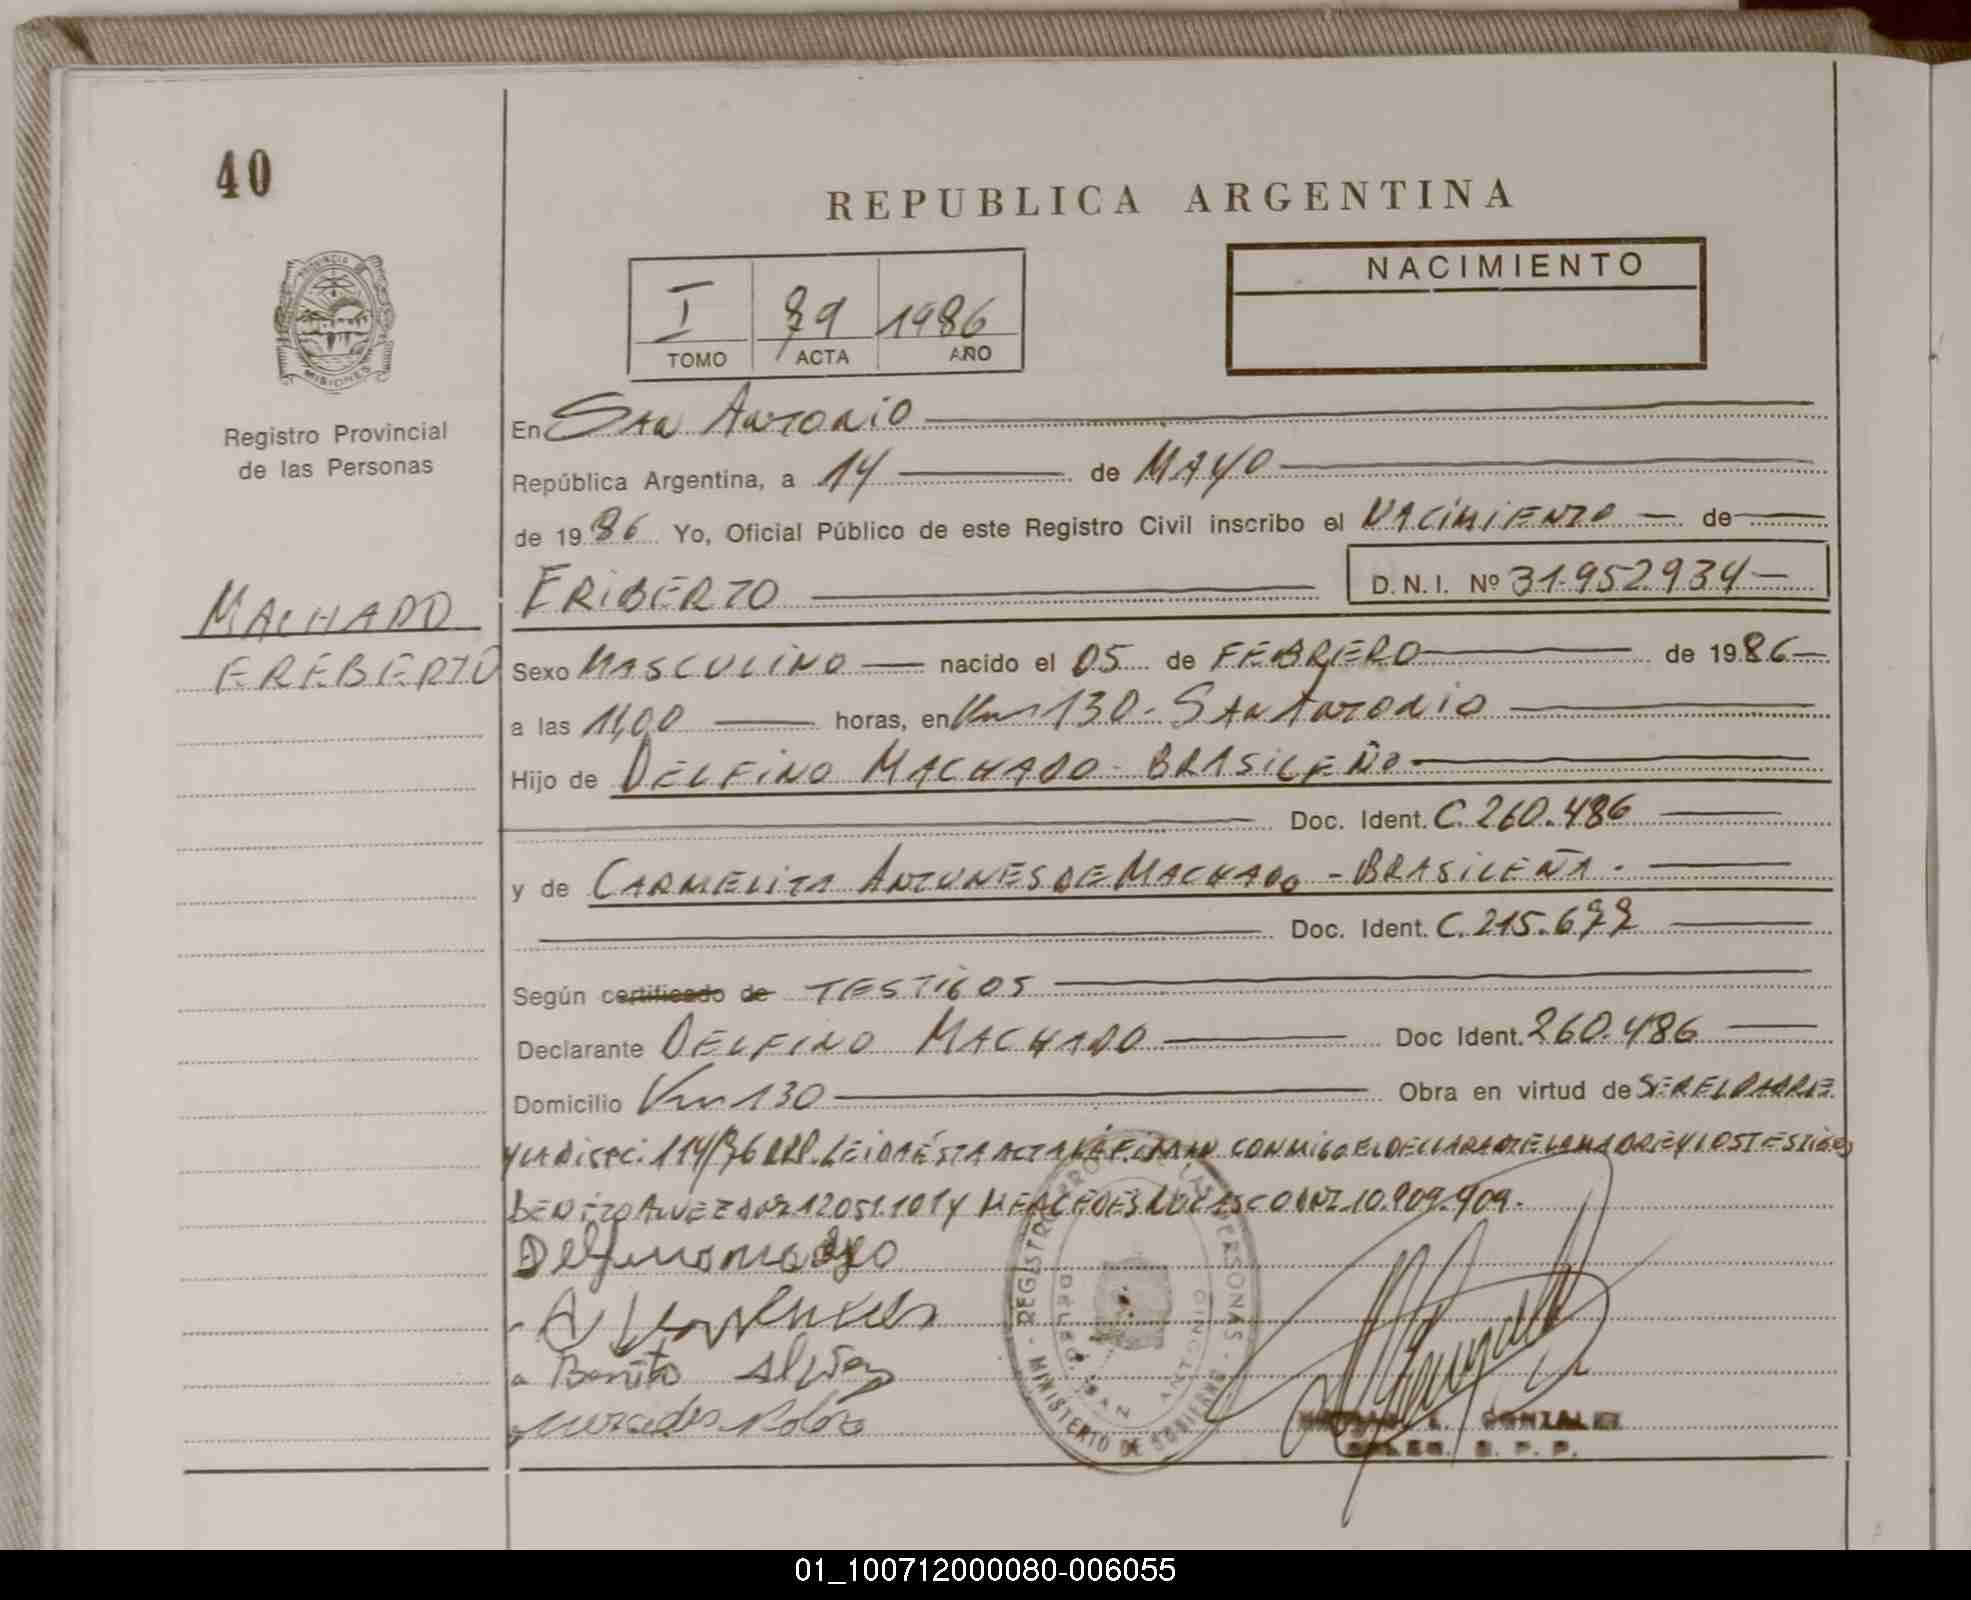 40
REPUBLICA ARGENTINA
NACIMIENTO
I 79 1986
TOMO ACTA AÑO
PROVINCIA DE
MISIONES
Registro Provincial
de las Personas
En SAN ANTONIO
República Argentina, a 14 de MAYO
de 1986 Yo, Oficial Público de este Registro Civil inscribo el NACIMIENTO de
ERIBERTO D.N.I. Nº 31.952.934
MACHADO
EREBERTO
Sexo MASCULINO nacido el 05 de FEBRERO de 1986
a las 11,00 horas, en Km 130 - SAN ANTONIO
Hijo de DELFINO MACHADO - BRASILEÑO
Doc. Ident. C. 260.486
y de CARMELITA ANTUNES DE MACHADO - BRASILEÑA.
Doc. Ident. C. 215.677
Según certificado de TESTIGOS
Declarante DELFINO MACHADO Doc Ident. 260.486
Domicilio Km 130 Obra en virtud de SER EL PADRE
Y LA DISPC. 114/76 LEIDA ÉSTA ACTA LA FIRMAN CONMIGO EL DECLARANTE LA MADRE Y LOS TESTIGOS
BENITO ALVEZ DNI 12.051.101 y MERCEDES DNI 10.909.909.
Delfino
Benito Alvez
Mercedes
REGISTRO PROV. DE LAS PERSONAS
MINISTERIO DE GOBIERNO
DELEG. SAN ANTONIO
GONZALEZ
DELEG. R. P. P.
01_100712000080-006055